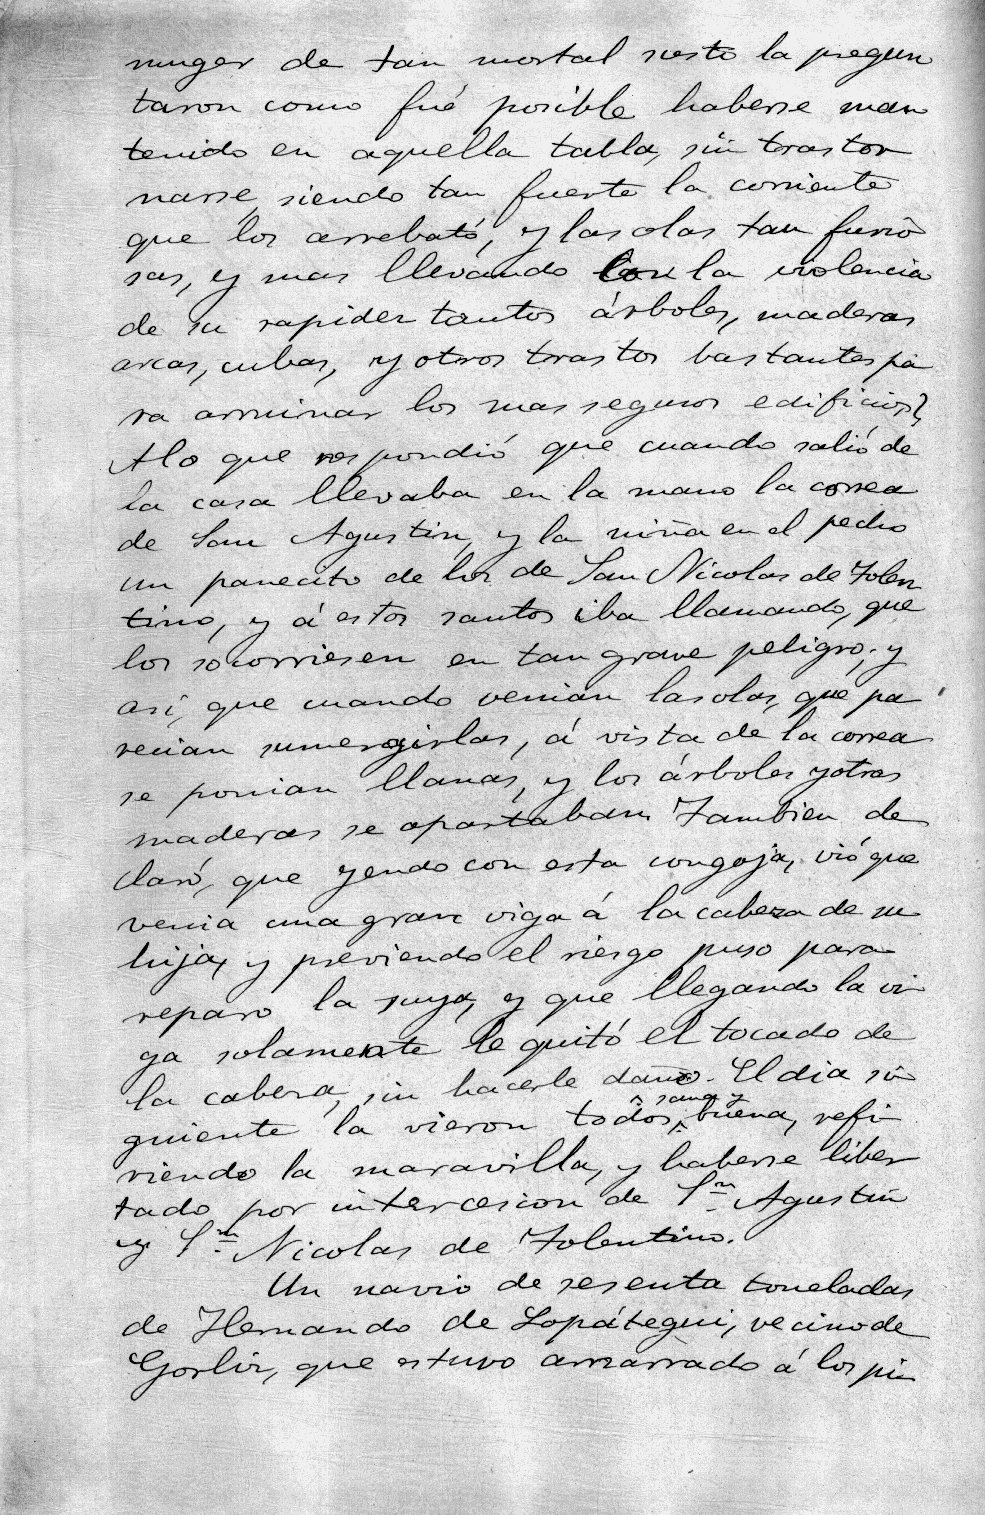 muger de tan mortal susto la pregun
taron como fué posible haberse man
tenido en aquella tabla, sin trastor
narse, siendo tan fuerte la corriente
que los arrebató, y las olas tan furio
sas, y mas llevando con la violencia
de su rapidez tantos árboles, maderas
arcas, cubas, y otros trastos bastantes pa
ra arruinar los mas seguros edificios?
A lo que respondió que cuando salió de
la casa llevaba en la mano la correa
de San Agustin, y la niña en el pecho
un panecito de los de San Nicolas de Tolen
tino, y á estos santos iba llamando, que
los socorriesen en tan grave peligro; y
asi, que cuando venian las olas, que pa
recian sumergirlas, á vista de la correa
se ponian llanas, y los árboles y otras
maderas se apartaban. Tambien de
claró, que yendo con esta congoja, vió que
venia una gran viga á la cabeza de su
hija, y previendo el riesgo puso para
reparo la suya, y que llegando la vi
ga solamente le quitó el tocado de
la cabeza, sin hacerle daño. El dia si
guiente la vieron todos sana y buena, refi
riendo la maravilla, y haberse liber
tado por intercesion de Sn Agustin
y Sn Nicolas de Tolentino.
Un navio de sesenta toneladas
de Hernando de Lopátegui, vecino de
Gorliz, que estuvo amarrado á los pi